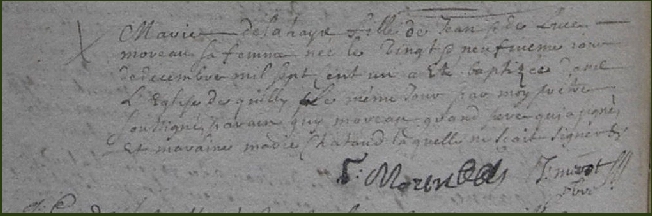 Marie delahaye fille de Jean & de Luce
moreau sa femme née le vingt & neufvieme jour
de decembre mil sept cent un a Eté baptizée dans
L'Eglise de quilly le même Jour par moy prêtre
soubsigné parain guy moreau grand pere qui a signé
Et maraine marie Chataud laquelle ne scait signer &
G: Moreau
prêtre